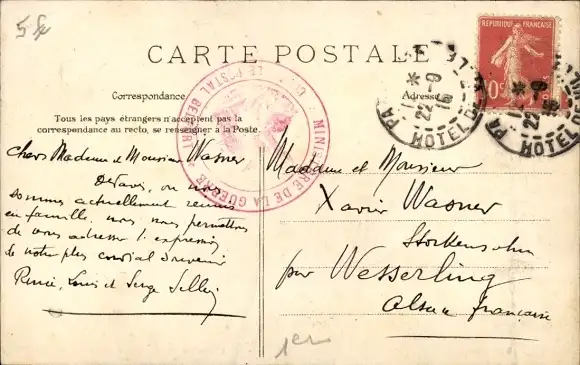 5 fr
CARTE POSTALE
RÉPUBLIQUE FRANÇAISE
Correspondance
Adresse
Tous les pays étrangers n'acceptent pas la
correspondance au recto, se renseigner à la Poste.
MINISTÈRE DE LA GUERRE
POSTAL
PA
HOTEL D
22 - 9
16
HOTEL
22 - 9
16
Chers Madame et Monsieur Wasner
De Paris, où nous
sommes actuellement réunis
en famille, nous nous permettons
de vous adresser l'expression
de notre plus cordial souvenir
Renée, Louis et Serge
Madame et Monsieur
Xavier Wasner
Storkensohn
par Wesserling
Alsace française